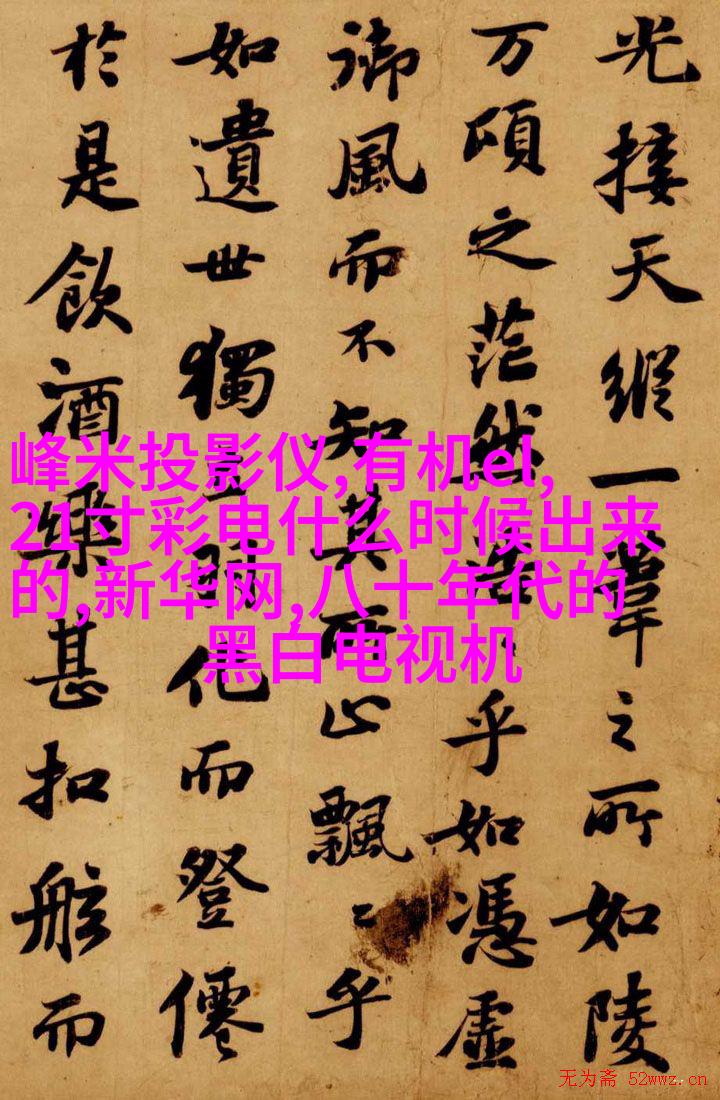 光接天縱一葦之所如陵
万頃之茫然浩〻乎如憑虛
御風而不知其所止飄〻乎
如遺世獨立羽化而登僊
於是飲酒樂甚扣舷而
峰米投影仪,有机el,
21寸彩电什么时候出来
的,新华网,八十年代的
黑白电视机
无为斋 52wwz.cn